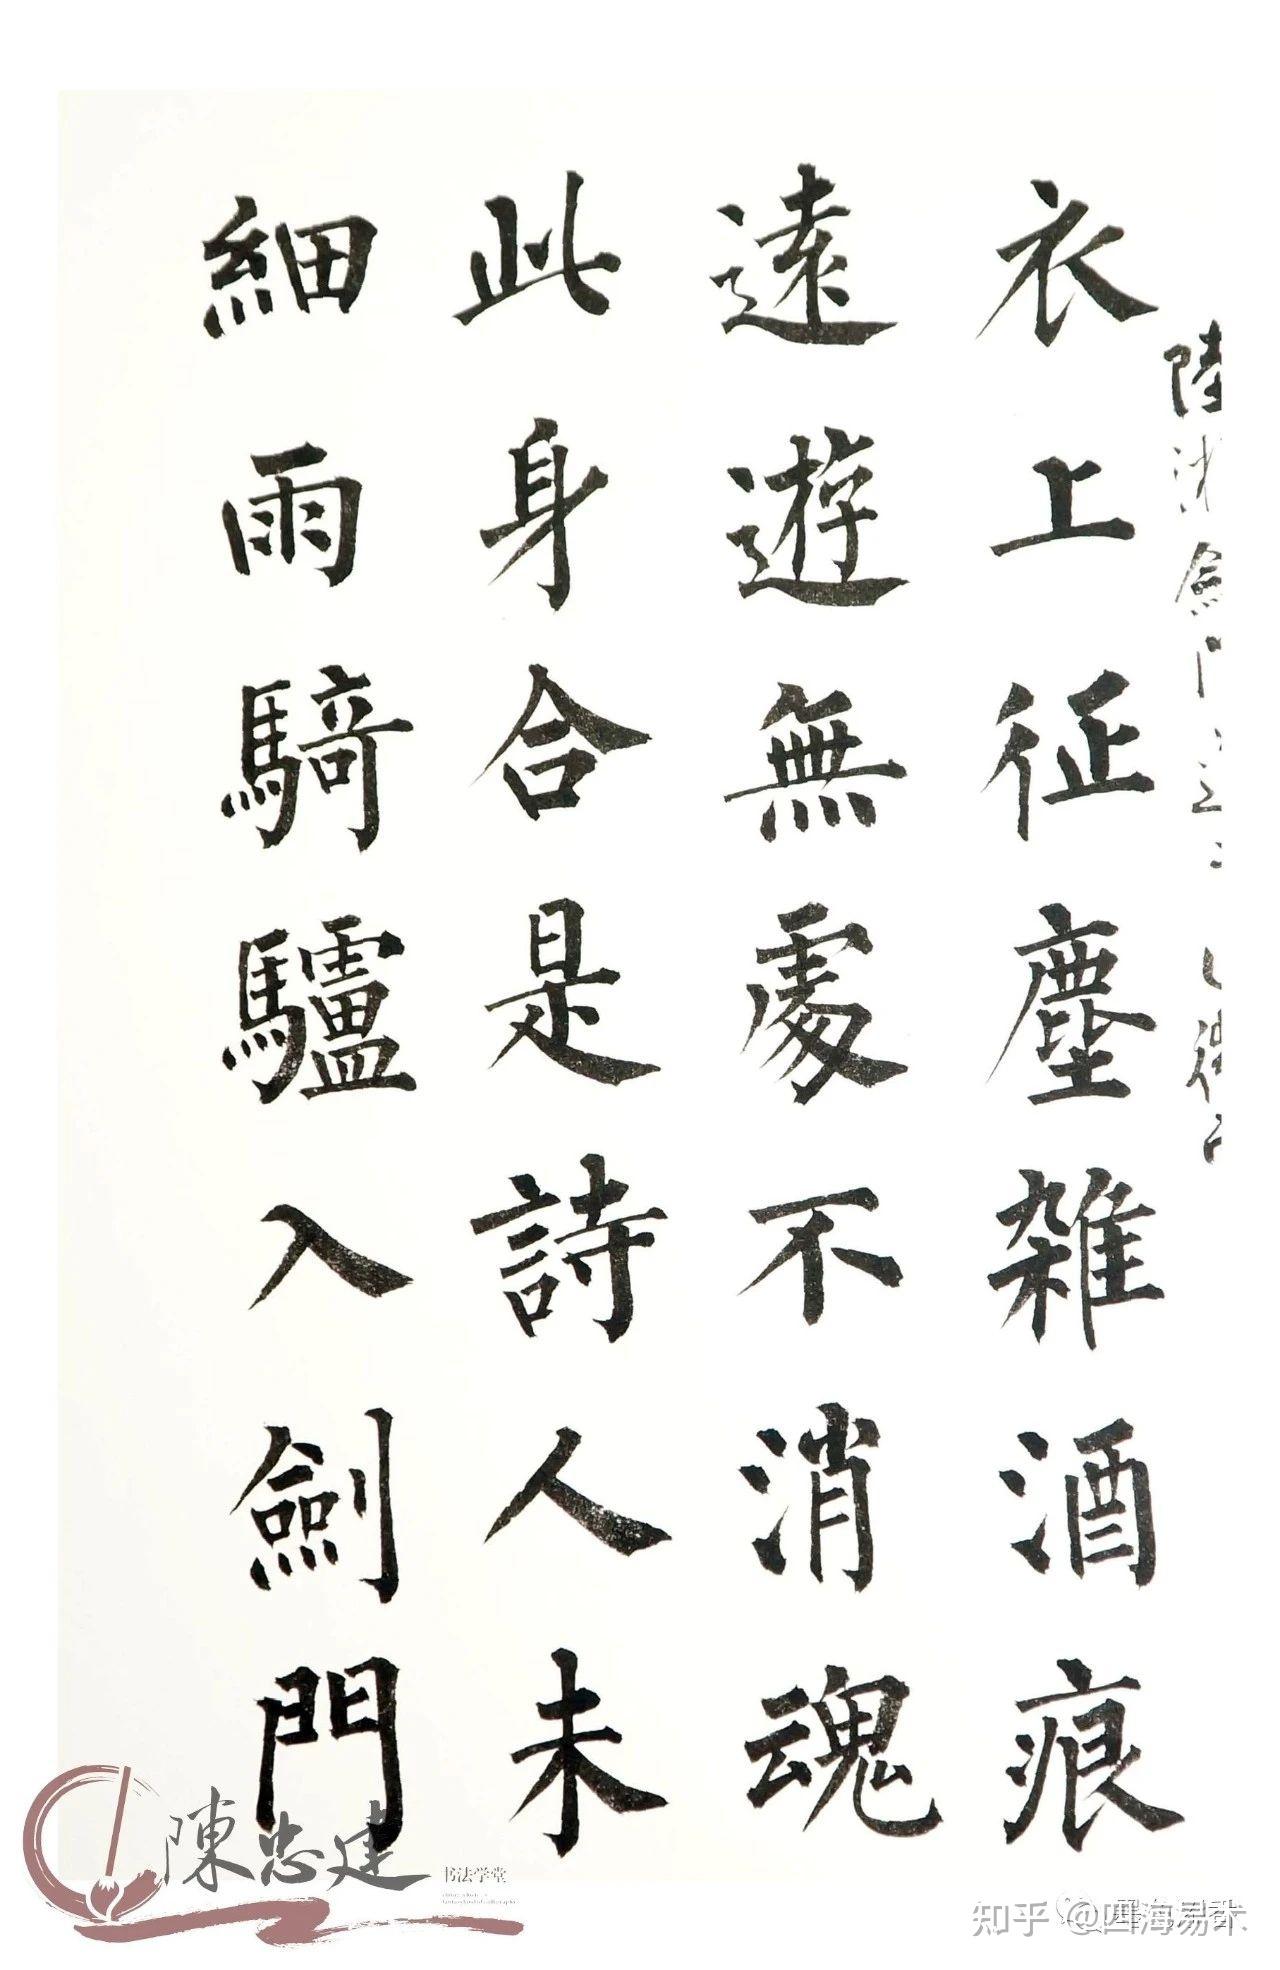 衣上征塵雑酒痕
遠遊無處不消魂
此身合是詩人未
細雨騎驢入劍門
陳忠建
书法学堂
知乎